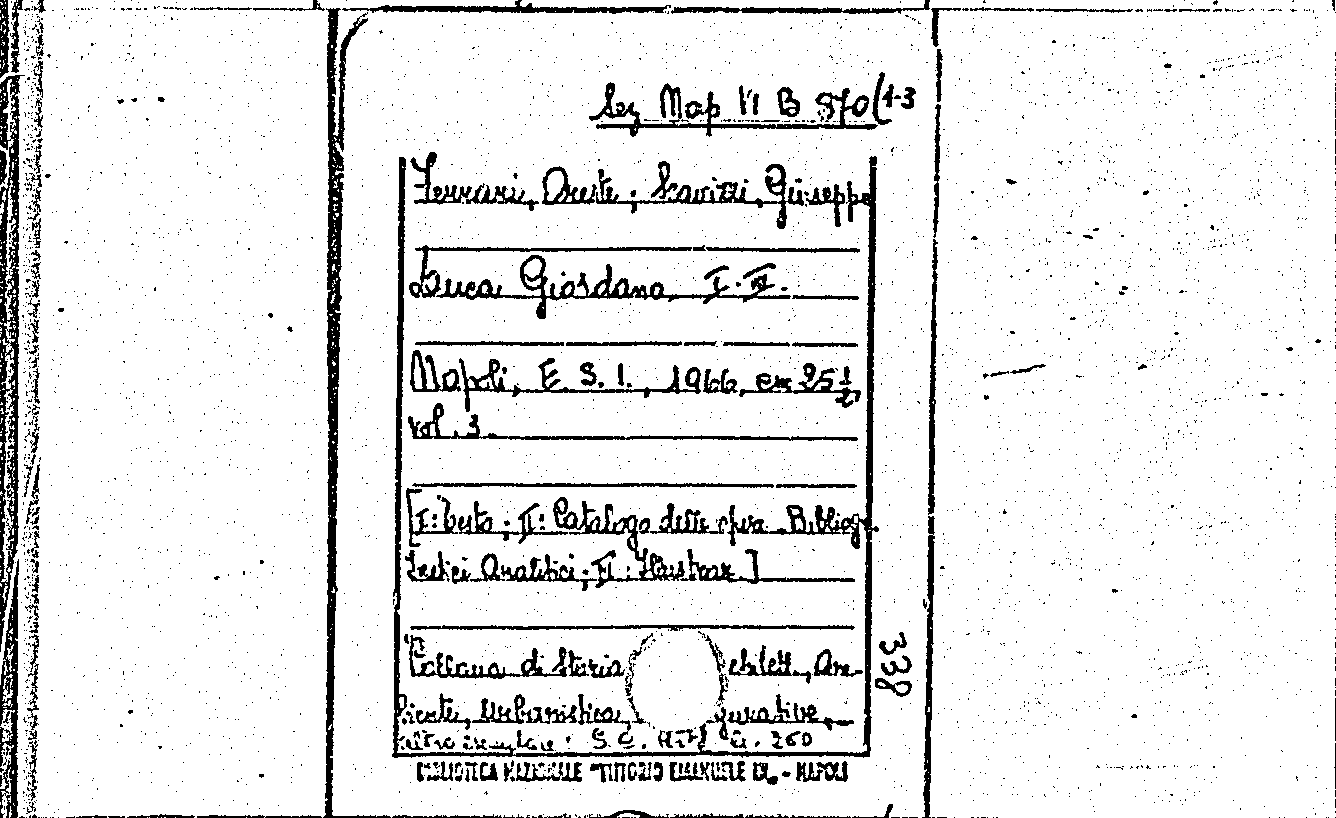 Sez Map VI B 870(1-3
Ferrari, Oreste; Scavizzi, Giuseppe
Luca Giordano I-III.
Napoli, E. S. I., 1966, cm 25 1/2
vol. 3.
[I: Testo; II: Catalogo delle opere. Bibliogr.
Indici Analitici; III: Illustraz.]
Collana di Storia chitett., Am-
biente, Urbanistica, gurative,
altro esemplare: S.C. 260
338
BIBLIOTECA NAZIONALE "VITTORIO EMANUELE III" - NAPOLI